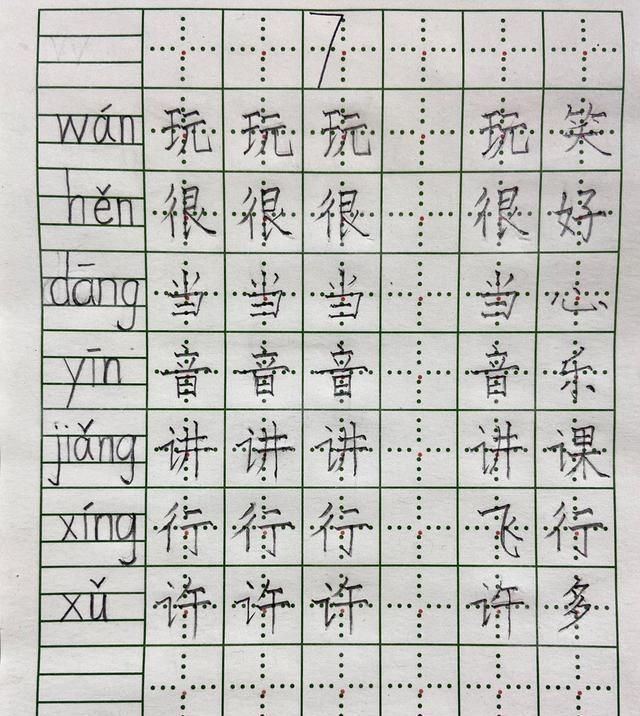 7
wán 玩 玩 玩 玩 笑
hěn 很 很 很 很 好
dāng 当 当 当 当 心
yīn 音 音 音 音 乐
jiǎng 讲 讲 讲 讲 课
xíng 行 行 行 飞 行
xǔ 许 许 许 许 多